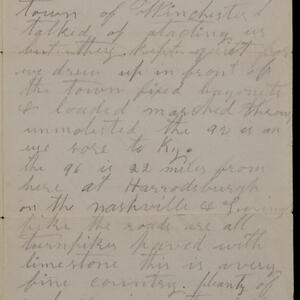 town of Winchester
talked of placting us
but they kept quiet
we drew up in front of
the town fixed bayonets
& loaded marched through
unmolested the 92 is an
eye sore to Ky.
the 96 is 22 miles from
here at Harrodsburgh
on the nashville &
pike the roads are all
turnpikes paved with
limestone this is a very
fine country. plenty of